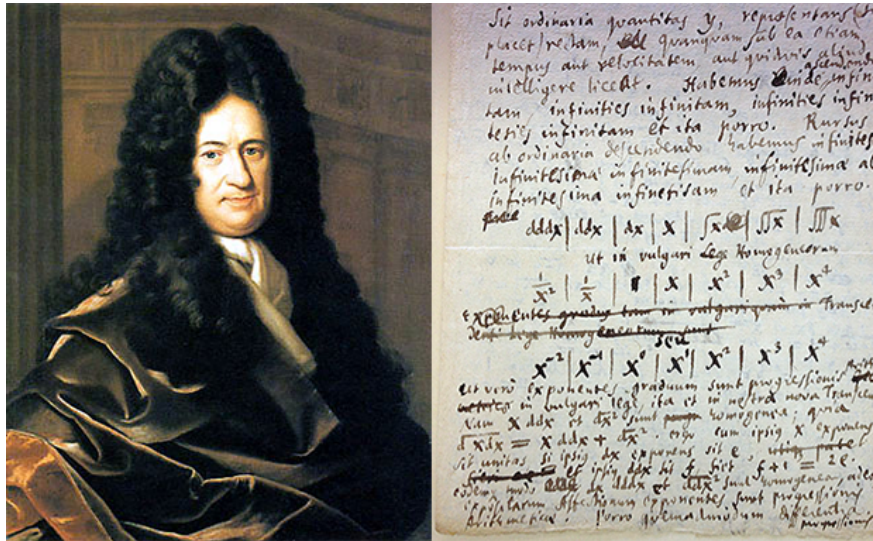 Sit ordinaria quantitas y, repræsentans (si
placet) rectam, quanquam sub ea etiam
tempus aut velocitatem, aut quidvis aliud
intelligere liceat. Habemus inde ascendendo infini
tam, infinities infinitam, infinities infin
ities infinitam et ita porro. Rursus
ab ordinaria descendendo habemus infinites
infinitesima infinitesimam, infinitesima
infinitesima et ita porro.
dddx | ddx | dx | x | ∫x | ∬x | ∭x
ut in vulgari Lege Homogeneorum
1/x² | 1/x | 1 | x | x² | x³ | x⁴
Exponentes gradus tam in vulgari quam in Transcen
denti Lege Homogeneorum sunt
seu
x⁻² | x⁻¹ | x⁰ | x¹ | x² | x³ | x⁴
ut vero exponentes graduum sunt progressionis
in vulgari lege, ita et in nostra nova Transcen
nam x ddx et dx² sunt homogenea; quia
d xdx = x ddx + dx². ergo cum ipsius x exponens
sit unitas si ipsius dx exponens sit e,
et ipsius ddx sit f fiet f+1 = 2e.
eodem modo dx dddx et ddx² sunt homogenea, adeo
exponentes sunt progressionis
Arithmeticæ. Porro quemadmodum differentia
progressionis